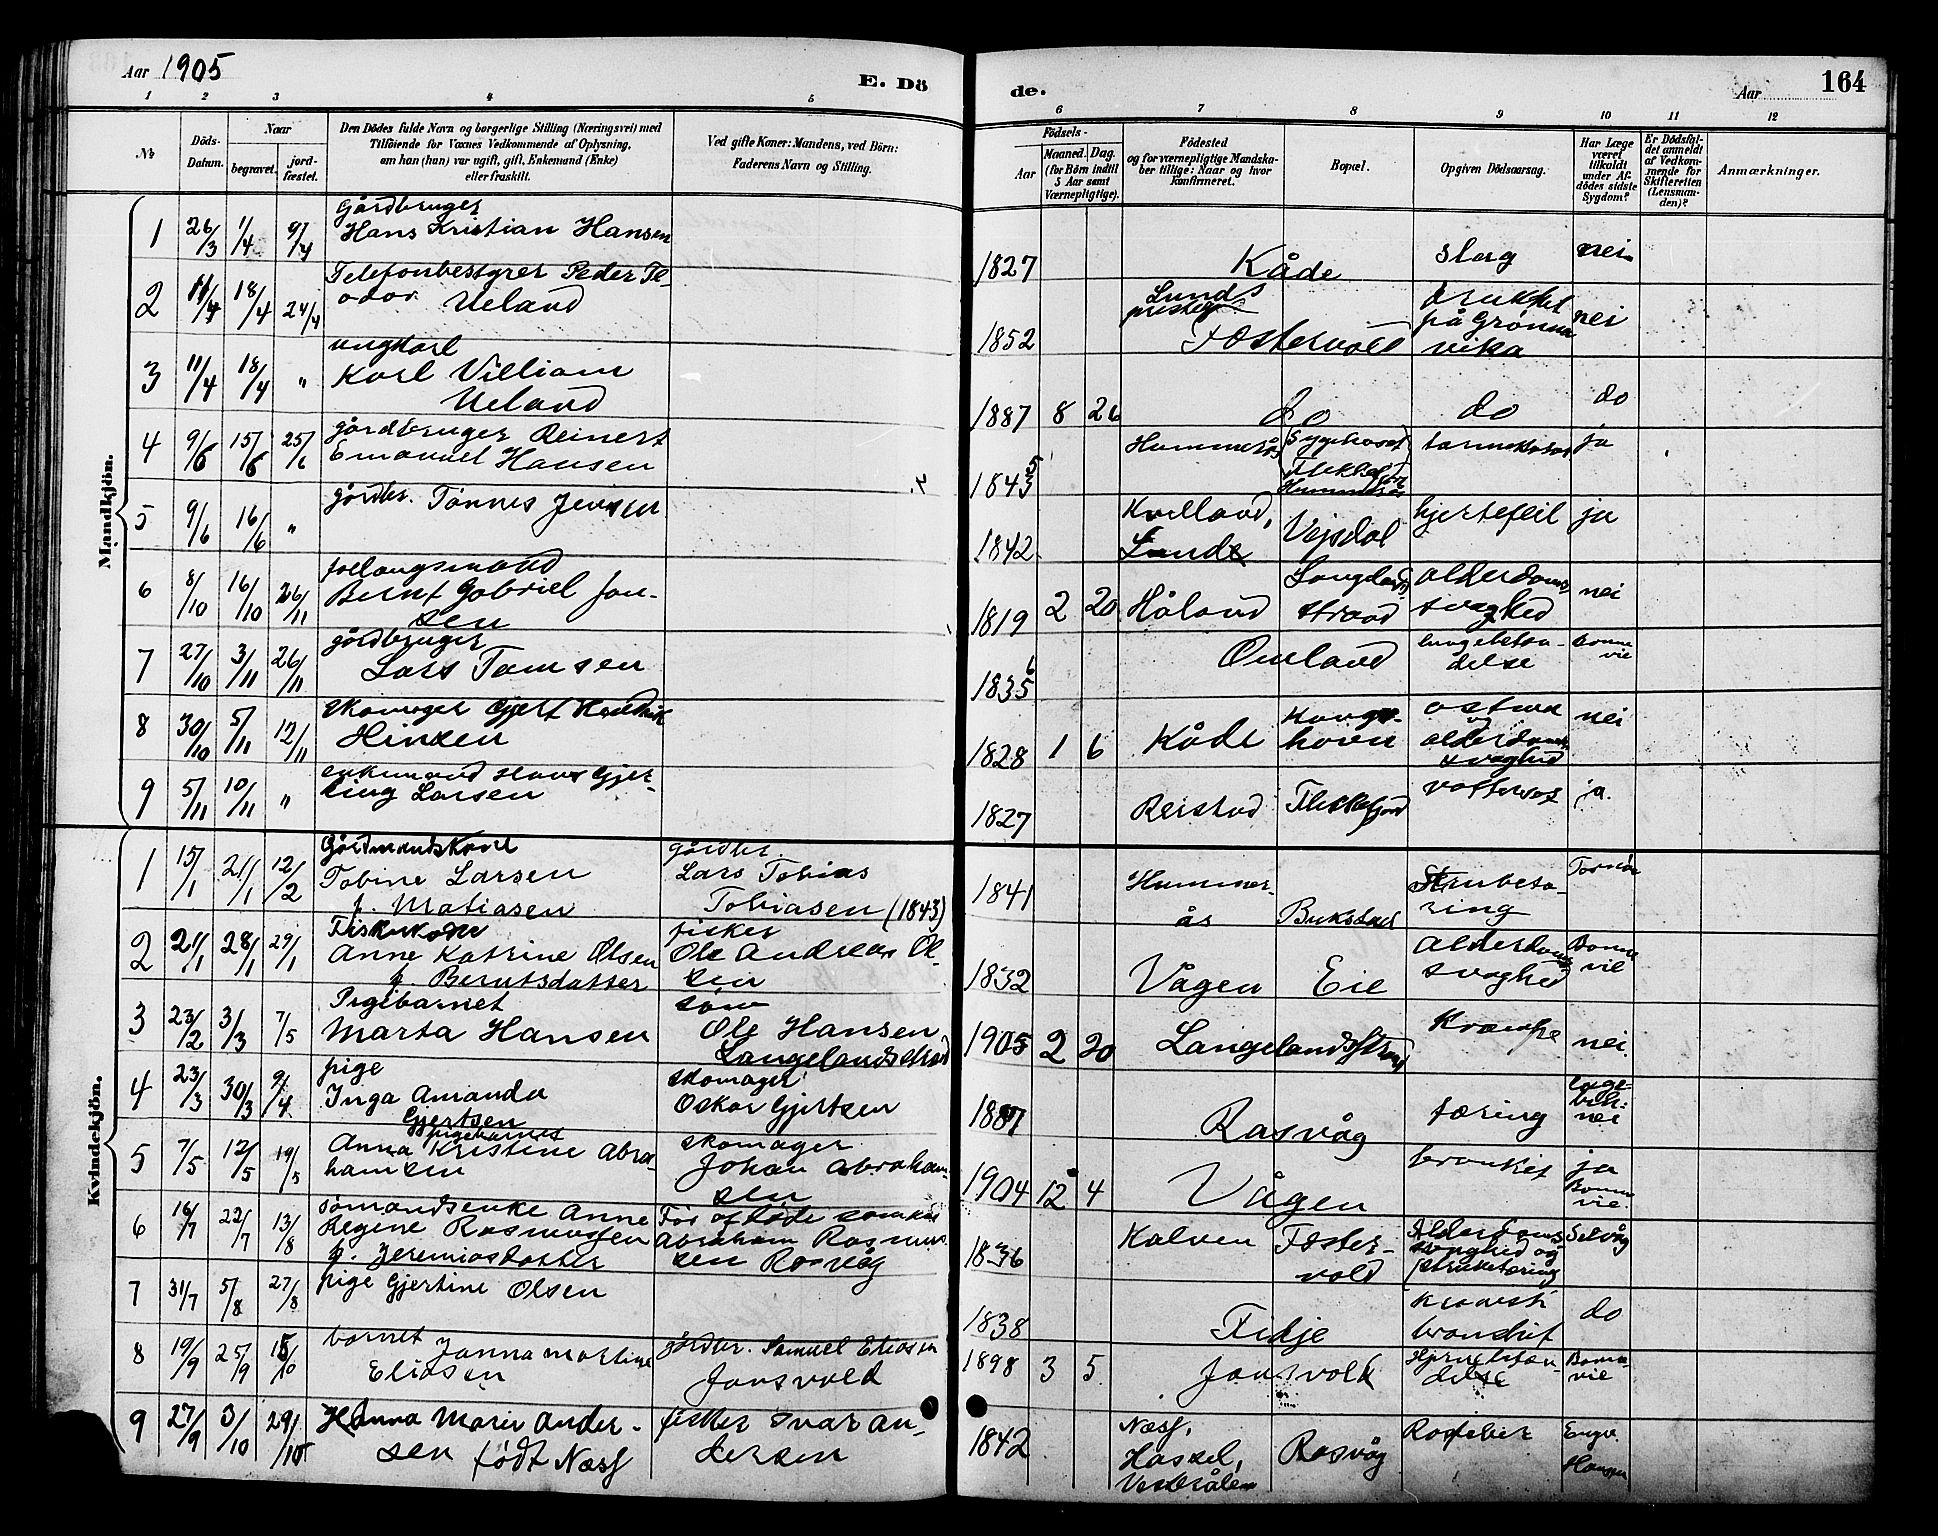 Aar 1905
E. Dö
de.
Aar
164
1 2 3 4 5 6 7 8 9 10 11 12
№
Döds-
Datum.
Naar
begravet.
jord-
fæstet.
Den Dödes fulde Navn og borgerlige Stilling (Næringsvei) med
Tilföiende for Voxnes Vedkommende af Oplysning,
om han (hun) var ugift, gift, Enkemand (Enke)
eller fraskilt.
Ved gifte Koner: Mandens, ved Börn:
Faderens Navn og Stilling.
Födsels-
Aar
Maaned. Dag.
(for Börn indtil
5 Aar samt
Værnepligtige).
Födested
og for værnepligtige Mandska-
ber tillige: Naar og hvor
konfirmeret.
Bopæl.
Opgiven Dödsaarsag.
Har Læge
været
tilkaldt
under Af-
dödes sidste
Sygdom?
Er Dödsfal-
det anmeldt
af Vedkom-
mende for
Skifteretten
(Lensman-
den)?
Anmærkninger.
Mandkjön.
1 26/3 1/4 9/4 Gårdbruger
Hans Kristian Hansen
1827 Kåde slag nei
2 11/4 18/4 24/4 Telefonbestyrer Peder Te-
odor Ueland
1852 Lunds
prestegj Fæstervold druknet
på Grønne
vika nei
3 11/4 18/4 " ungkarl
Karl Villiam
Ueland
1887 8 26 do do do
4 9/6 15/6 25/6 gårdbruger Reinert
Emanuel Hansen
1843 Hummerås Sygehuset
Flekkefjord ja
5 9/6 16/6 " gårdbr. Tønnes Jensen
1842 Kvelland,
Lunde Vejsdal hjertefeil ja
6 8/10 16/10 26/11 følaugsmand
Bernt Gabriel Jan-
sen
1819 2 20 Håland Langelands
strand alderdoms
svaghed nei
7 27/10 3/11 26/11 gårdbruger
Lars Tomsen
1835 Omland lungebetæn-
delse Bonne
vie
8 30/10 5/11 12/11 skomager Gjert Hendrik
Hinsen
1828 1 6 Kåde Kongs-
havn astma
og
alderdoms
svaghed nei
9 5/11 10/11 " enkemand Hans Gjer-
ding Larsen
1827 Reistad Flekkefjord vattersot ja.
Kvindekjön.
1 15/1 21/1 12/2 Gårdmandskone
Tobine Larsen
f. Matiasen
gårdbr.
Lars Tobias
Tobiasen (1843)
1841 Hummer-
ås Bukstad Strubetæ-
ring Tornøe
2 21/1 28/1 29/1 Fiskerkone
Anne Katrine Olsen
f. Berntsdatter
fisker
Ole Andreas Ol-
sen
1832 Vågen Eie Alderdoms
svaghed Bonne
vie
3 23/2 3/3 7/5 Pigebarnet
Marta Hansen
søm
Ole Hansen
Langelandsstrand
1905 2 20 Langelandsstrand Krampe nei.
4 23/3 30/3 9/4 pige
Inga Amanda
Gjertsen
skomager
Oskar Gjertsen
1887 Rasvåg tæring nei
5 7/5 12/5 19/5 pigebarnet
Anna Kristine Abra-
hamsen
skomager
Johan Abraham-
sen
1904 12 4 Vågen bronkit ja
Bonne
vie.
6 16/7 22/7 13/8 sømandsenke Anne
Regine Rasmussen
f. Jeremiasdatter
Før afdøde sømand
Abraham Rasmus-
sen Rasvåg
1836 Kalven Fæster-
vold Alderdoms
svaghed og
strubetæring Selvåg
7 31/7 5/8 27/8 pige Gjertine Olsen
1838 Fidje kronisk
bronchit do
8 19/9 25/9 15/10 barnet Janna Martine
Eliasen
gårdbr. Samuel Eliasen
Jansvold
1898 3 5 Jansvold Hjernebetæn-
delse Bonne-
vie
9 27/9 3/10 29/10 Hanna Marie Ander-
sen født Næss
fisker Ivar An-
dersen
1842 Næss,
Hassel,
Vesterålen Rasvåg Rosfeber Engv.
Hansen